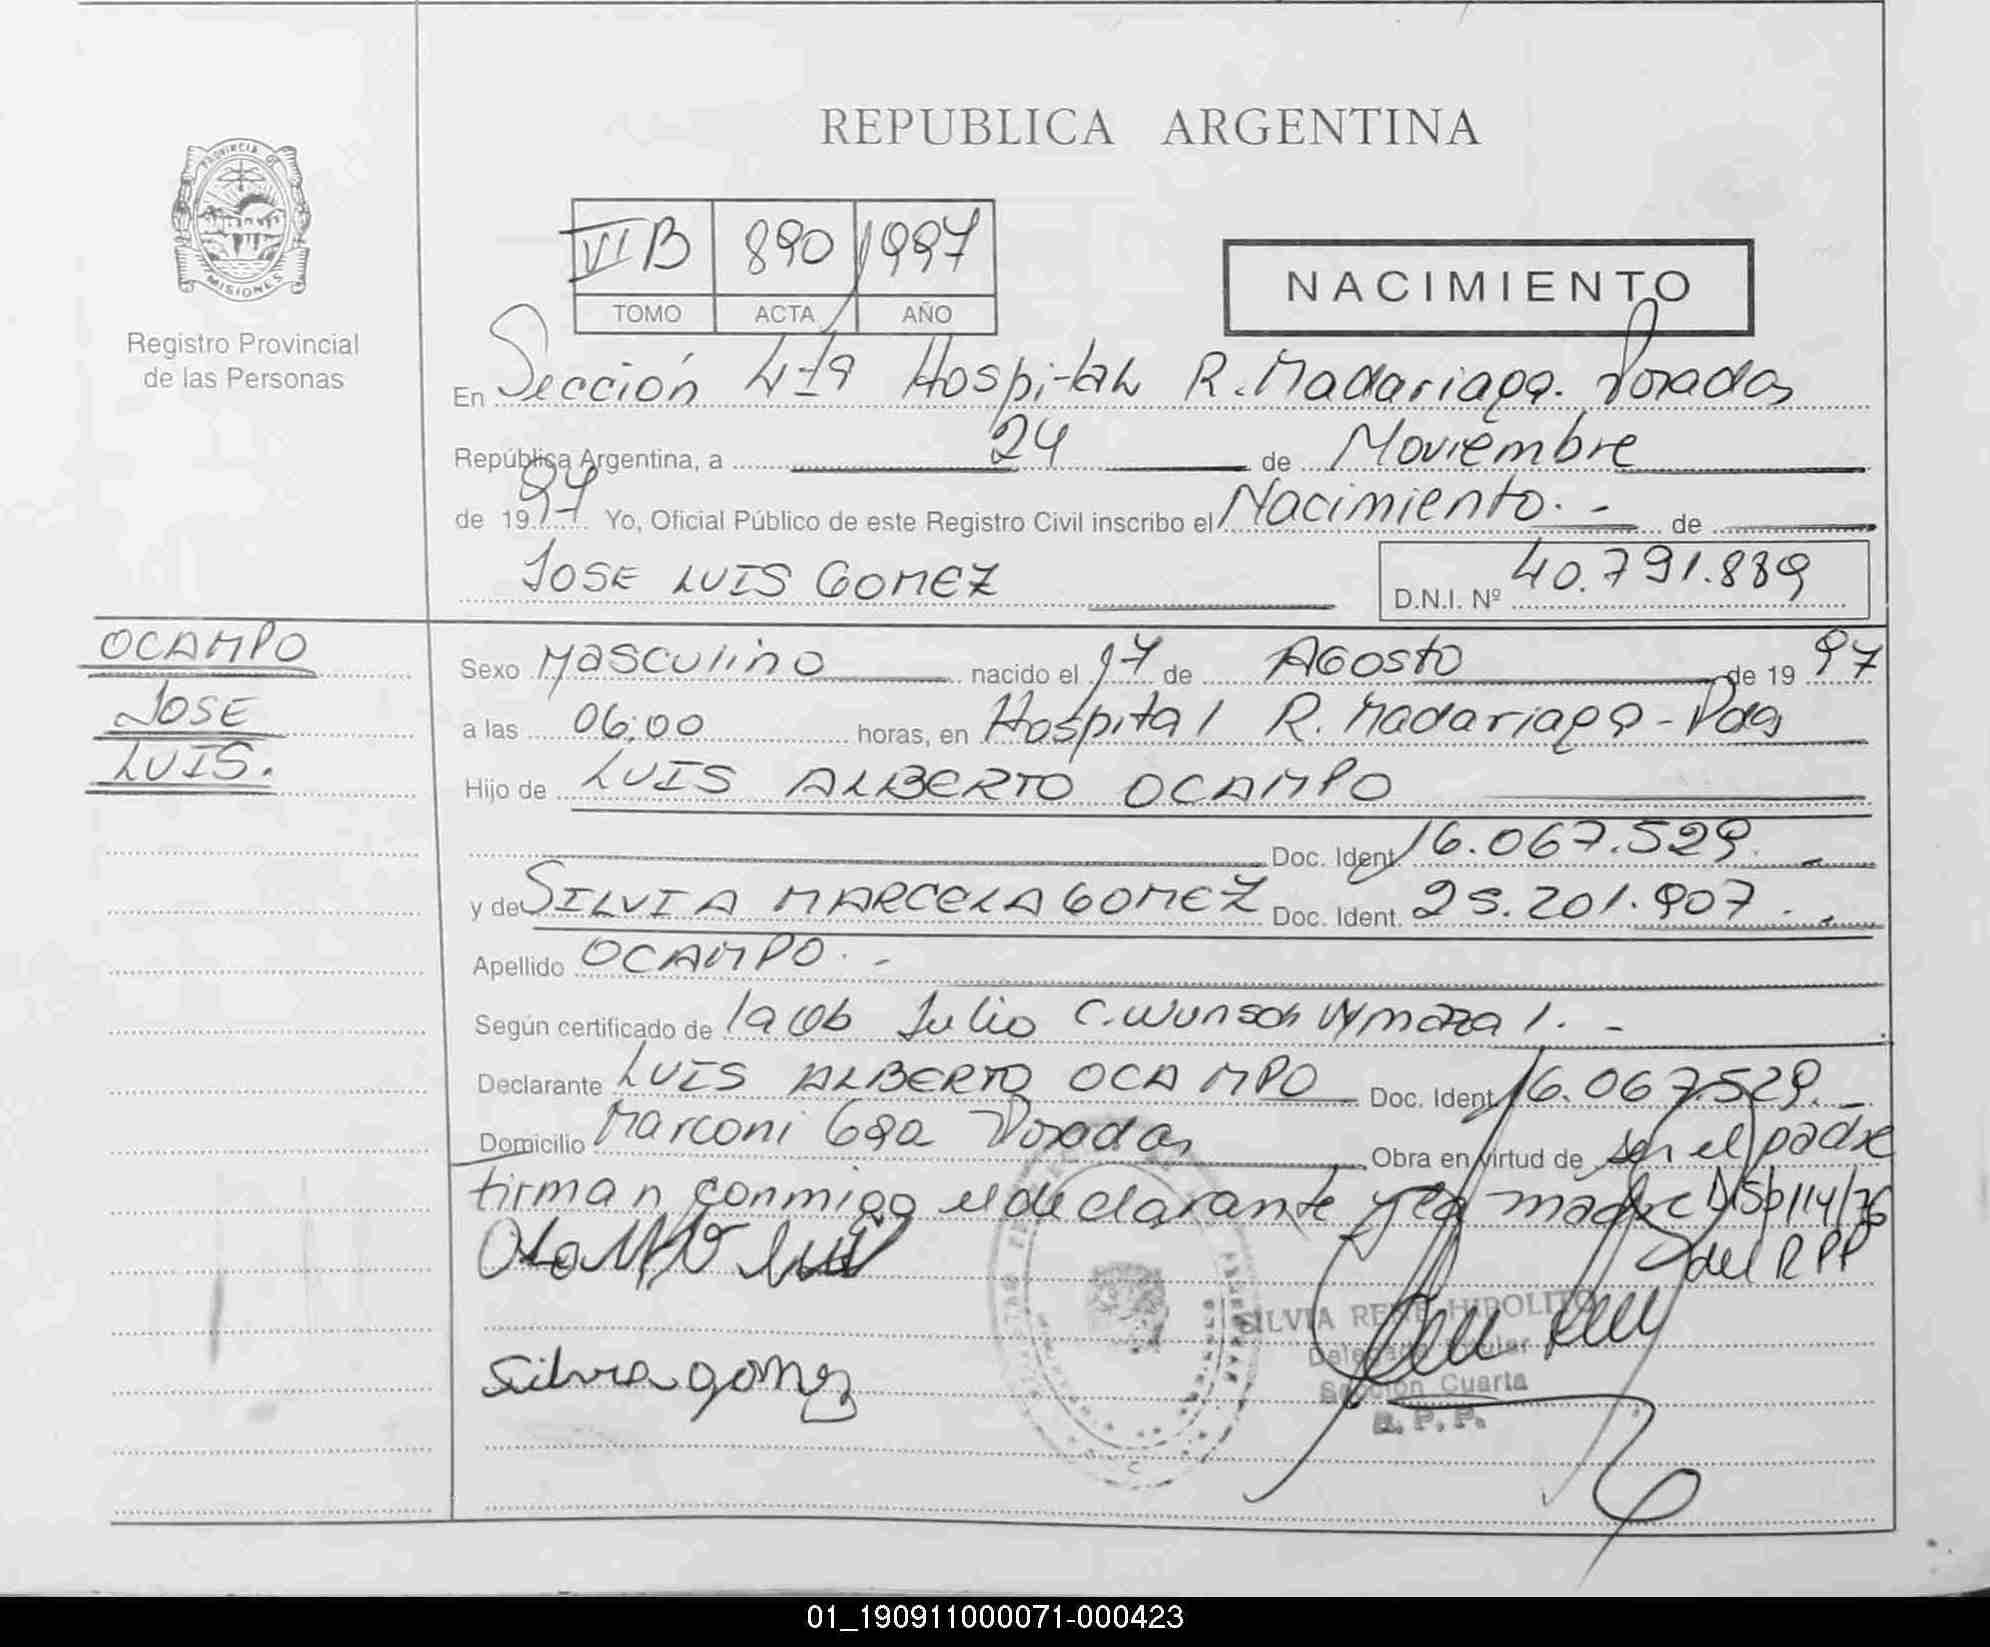 REPUBLICA ARGENTINA
PROVINCIA DE
MISIONES
Registro Provincial
de las Personas
VI B 890 1997
TOMO ACTA AÑO
NACIMIENTO
En Sección 4ta Hospital R. Madariaga. Posadas
República Argentina, a 24 de Noviembre
de 1997 Yo, Oficial Público de este Registro Civil inscribo el Nacimiento. - de
JOSE LUIS GOMEZ D.N.I. Nº 40.791.889
OCAMPO
JOSE
LUIS.
Sexo Masculino nacido el 17 de Agosto de 1997
a las 06:00 horas, en Hospital R. Madariaga - Pdas
Hijo de LUIS ALBERTO OCAMPO
Doc. Ident. 16.067.529. -
y de SILVIA MARCELA GOMEZ Doc. Ident. 25.201.907. -
Apellido OCAMPO. -
Según certificado de Julio C. Wunsch 1. -
Declarante LUIS ALBERTO OCAMPO Doc. Ident. 16.067.529. -
Domicilio Marconi Posadas Obra en virtud de ser el padre
firman conmigo el declarante y la madre
del RPP
SILVIA RENE HIPOLITO
Delegada Titular
Sección Cuarta
R. P. P.
Silvia gomez
01_190911000071-000423